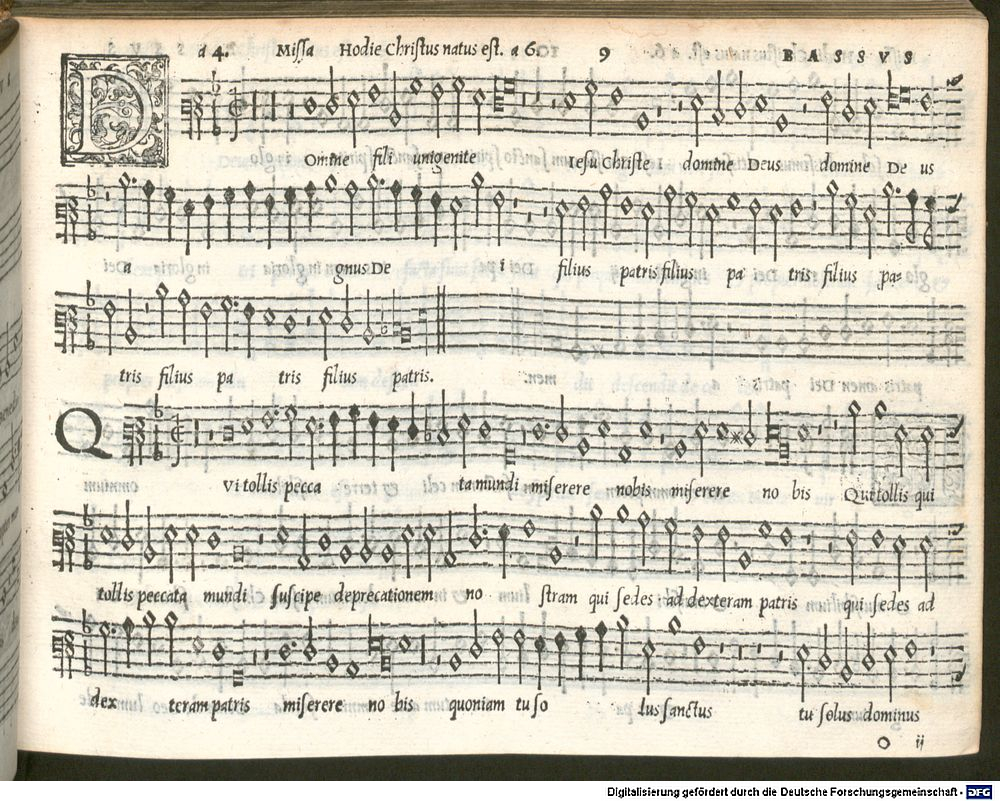 a 4. Missa Hodie Christus natus est. a 6. 9 BASSVS
D Omine fili unigenite Iesu Christe domine Deus domine De us
a gnus De i filius patris filius pa tris filius pa-
tris filius pa tris filius patris.
Q Vi tollis pecca ta mundi miserere nobis miserere no bis Qui tollis qui
tollis peccata mundi suscipe deprecationem no stram qui sedes ad dexteram patris qui sedes ad
dex teram patris miserere no bis quoniam tu so lus sanctus tu solus dominus
O ij
Digitalisierung gefördert durch die Deutsche Forschungsgemeinschaft - DFG